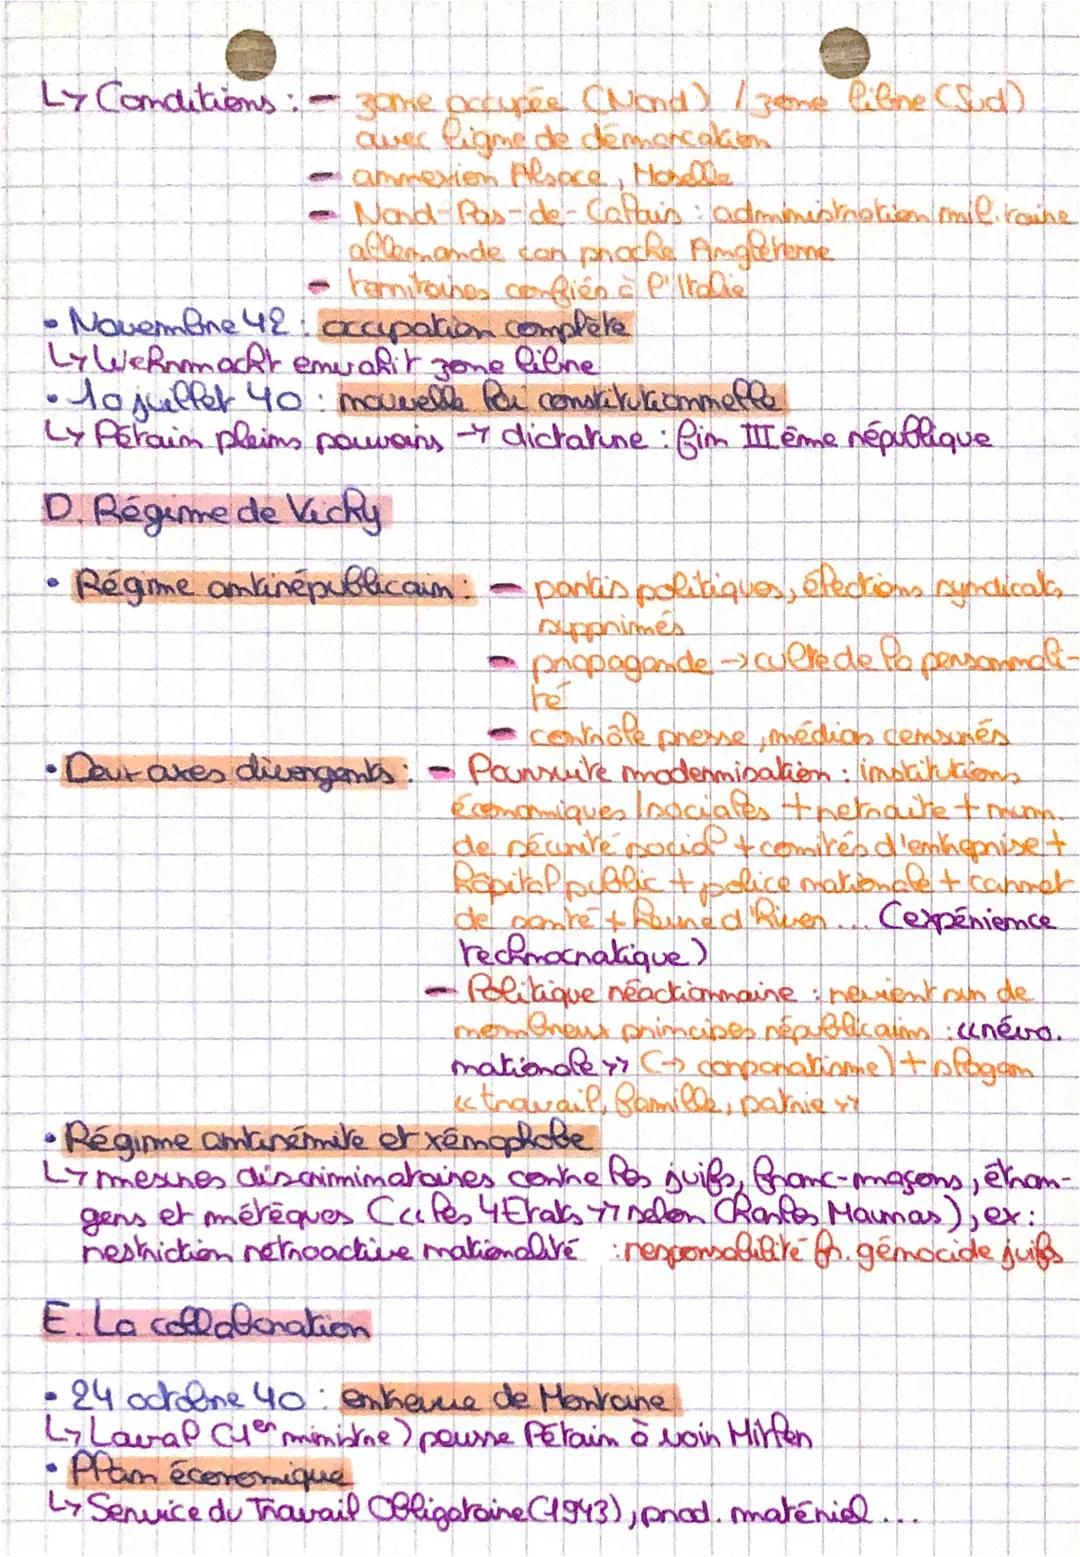 ↳ Conditions : - zone occupée (Nord) / zone libre (Sud)
avec ligne de démarcation
- annexion Alsace, Moselle
- Nord-Pas-de-Calais : administration militaire
allemande car proche Angleterre
- territoires confiés à l'Italie
• Novembre 42 : occupation complète
↳ Wehrmacht envahit zone libre
• 10 juillet 40 : nouvelle loi constitutionnelle
↳ Pétain pleins pouvoirs → dictature : fin IIIème république
D. Régime de Vichy
• Régime antirépublicain : - partis politiques, élections syndicats
supprimés
- propagande → culte de la personnali-
té
- contrôle presse, médias censurés
• Deux axes divergents : - Poursuite modernisation : institutions
économiques / sociales + retraite + num.
de sécurité social + comités d'entreprise +
hôpital public + police nationale + carnet
de santé + heure d'hiver ... (expérience
technocratique)
- Politique réactionnaire : revient sur de
nombreux principes républicains : « révo.
nationale » (→ corporatisme) + slogan
« travail, famille, patrie »
• Régime antisémite et xénophobe
↳ mesures discriminatoires contre les juifs, franc-maçons, étran-
gers et métèques (« les 4 Etats » selon Charles Maurras), ex :
restriction rétroactive nationalité : responsabilité fr. génocide juifs
E. La collaboration
• 24 octobre 40 : entrevue de Montoire
↳ Laval (1er ministre) pousse Pétain à voir Hitler
• Plan économique
↳ Service du Travail Obligatoire (1943), prod. matériel ...